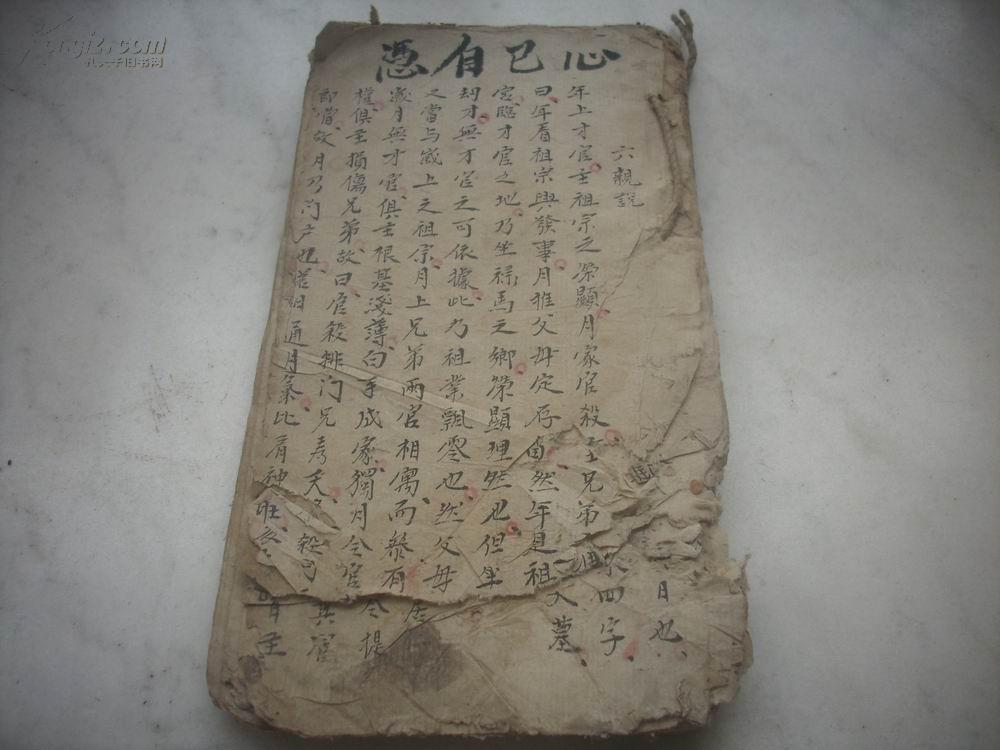 心已自憑
六親説
年上才官主祖宗之榮顯月家官殺主兄弟
四字
日也
曰年看祖宗興發事月推父母定存自然年是祖
入墓
宮臨才官之地乃坐祿馬之鄉榮顯理然也但坐
刼才無才官之可依據此乃祖業飄零也然父母
又當与歲上之祖宗月上兄弟兩宮相寓而叅有
歲月無才官俱主根基淺薄白手成家獨月令官
令提
權俱主損傷兄弟故曰官殺排门兄寿夭
其官
即當故月乃门户也
通月氣比肩神旺
孔夫子旧书网